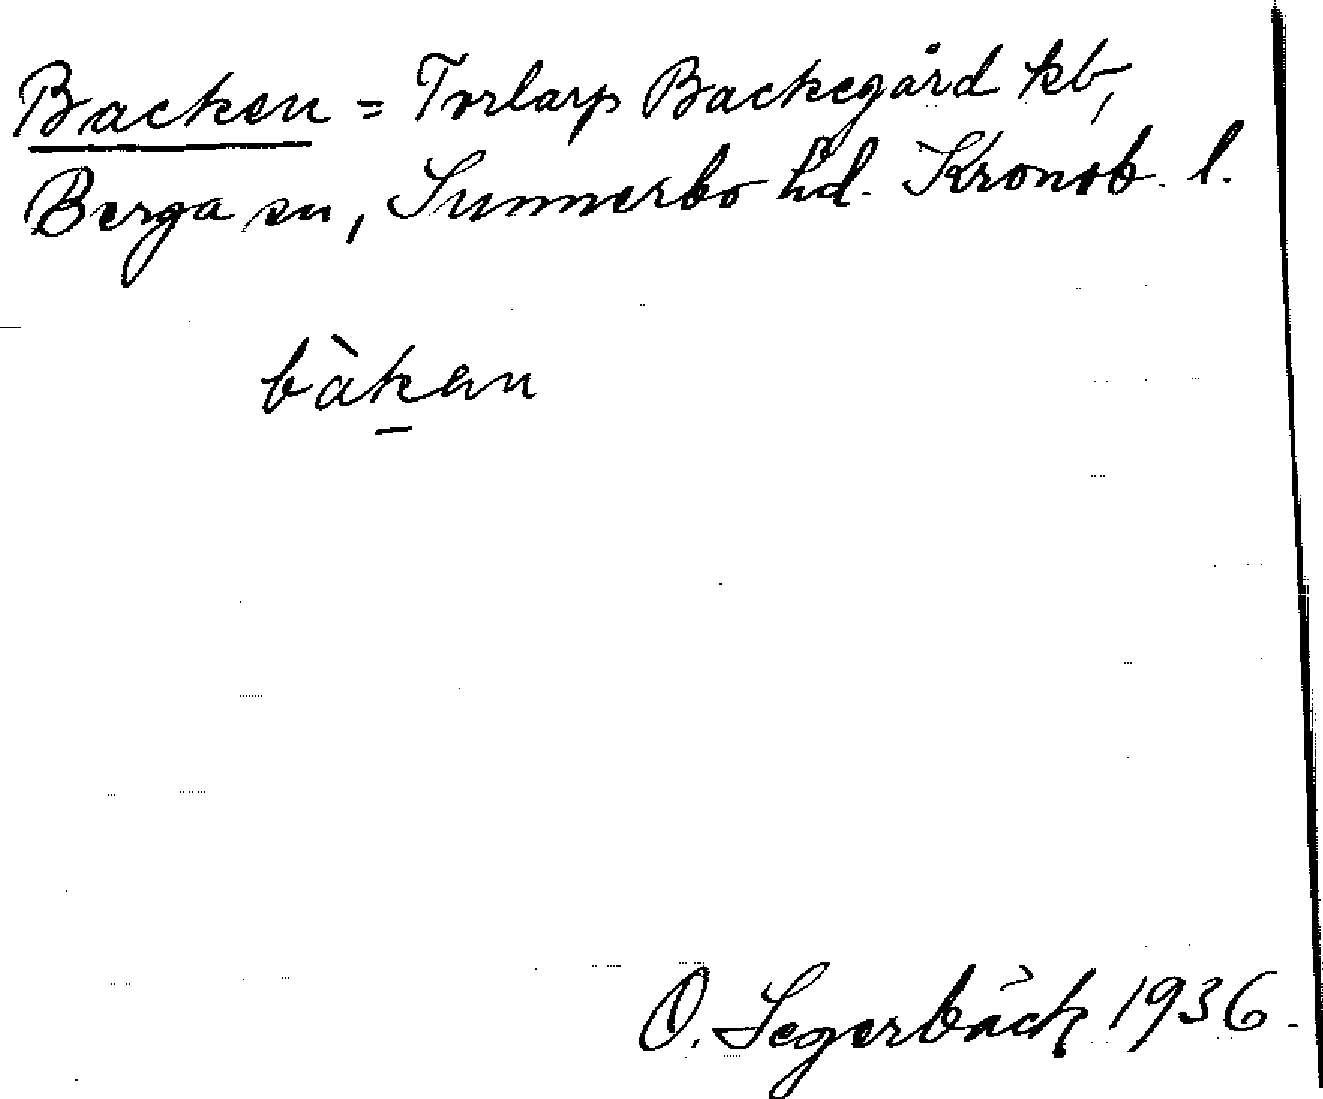 Backen = Torlarp Backegård kb,
Berga sn, Sunnerbo hd. Kronob. l.
bàkan
O. Segerbäck 1936.